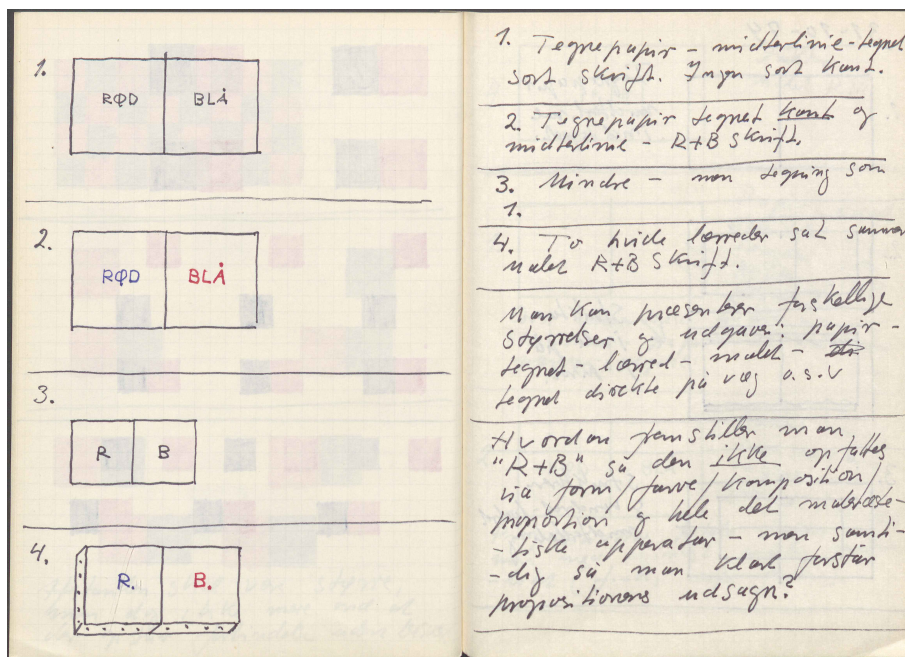 1.
RØD BLÅ
2.
RØD BLÅ
3.
R B
4.
R. B.
1. Tegnepapir - midterlinie - tegnet
sort skrift. Ingen sort kant.
2. Tegnepapir tegnet kant og
midterlinie - R+B skrift.
3. Mindre - men tegning som
1.
4. To hvide lærreder sat sammen
malet R+B skrift.
Man kan præsentere forskellige
størrelser og udgaver: papir -
tegnet - lærred - malet -
tegnet direkte på væg o.s.v
Hvordan fremstiller man
"R+B" så den ikke opfattes
via form/farve/komposition/
proportion og hele det maleræste-
-tiske apparatur - men samti-
-dig så man klart forstår
propositionens udsagn?